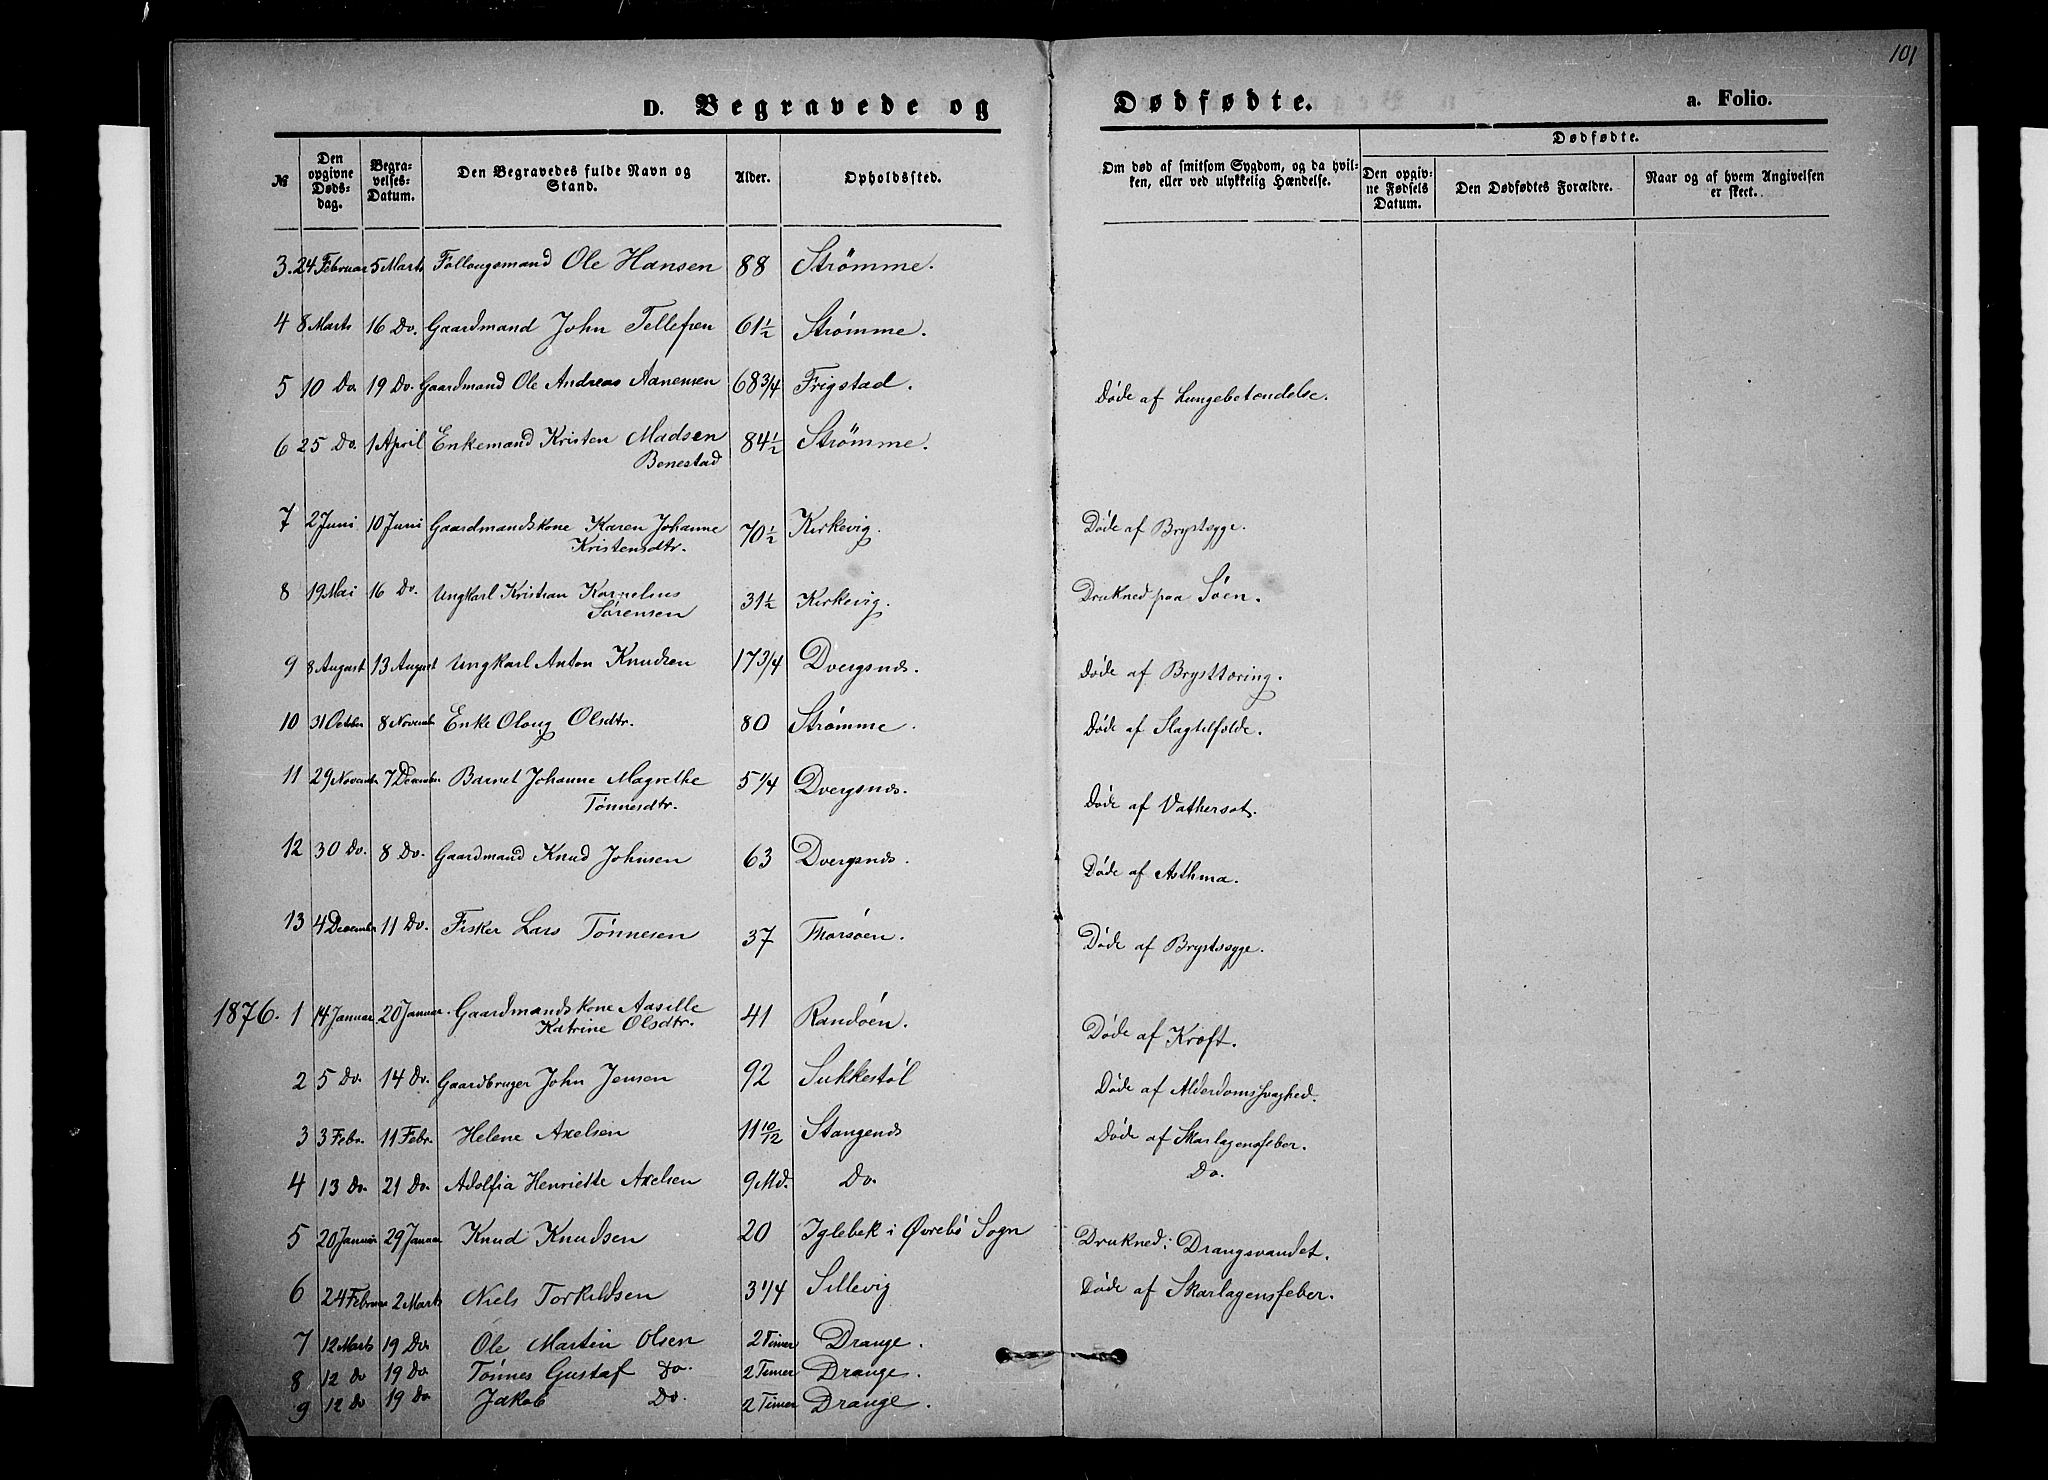 101
D. Begravede og Dødfødte. a. Folio.
№ | Den opgivne Døds-dag. | Begra-velses-Datum. | Den Begravedes fulde Navn og Stand. | Alder. | Opholdssted. | Om død af smitsom Sygdom, og da hvil-ken, eller ved ulykkelig Hændelse. | Dødfødte. | Den opgiv-ne Fødsels Datum. | Den Dødfødtes Forældre. | Naar og af hvem Angivelsen er skeet.
3. 24 Februar 5 Marts Follougsmand Ole Hansen 88 Strømme.
4 8 Marts 16 Do. Gaardmand John Tellefsen 61 1/2 Strømme.
5 10 Do. 19 Do. Gaardmand Ole Andreas Aanensen 68 3/4 Frigstad. Døde af Lungebetændelse.
6 25 Do. 1 April Enkemand Kristen Madsen 84 1/2 Strømme.
Benestad
7 2 Juni 10 Juni Gaardmandskone Karen Johanne 70 1/2 Kirkevig. Døde af Brystsyge.
Kristensdtr.
8 19 Mai 16 Do. Ungkarl Kristian Kornelius 31 1/2 Kirkevig. Drukned paa Søen.
Sørensen
9 8 August 13 August Ungkarl Anton Knudsen 17 3/4 Dvergsnæs. Døde af Brysttæring.
10 31 October 8 November Enke Oloug Olsdtr. 80 Strømme. Døde af Slagtilfælde.
11 29 November 7 December Barnet Johanne Magrethe 5 1/4 Dvergsnæs. Døde af Vathersot.
Tønnesdtr.
12 30 Do. 8 Do. Gaardmand Knud Johnsen 63 Dvergsnæs. Døde af Asthma.
13 4 December 11 Do. Fisker Lars Tønnesen 37 Tharsøen. Døde af Brystsyge.
1876. 1 14 Januar. 20 Januar. Gaardmandskone Aasille 41 Randøen. Døde af Kræft.
Katrine Olsdtr.
2 5 Do. 14 Do. Gaardbruger John Jensen 92 Sukkestøl Døde af Alderdomssvaghed.
3 3 Febr. 11 Febr. Helene Axelsen 11 10/12 Stangenæs Døde af Skarlagensfeber.
4 13 Do. 21 Do. Adolfia Henriette Axelsen 9 Md. Do. Do.
5 20 Januar 29 Januar Knud Knudsen 20 Iglebek i Øvrebø Sogn Drukned i Drangsvandet.
6 24 Februar 2 Marts Niels Torkildsen 3 1/4 Sillevig Døde af Skarlagensfeber.
7 12 Marts 19 Do. Ole Martin Olsen 2 Timer Drange.
8 12 Do 19 Do. Tønnes Gustaf Do. 2 Timer Drange.
9 12 Do 19 Do Jakob Do. 2 Timer Drange.